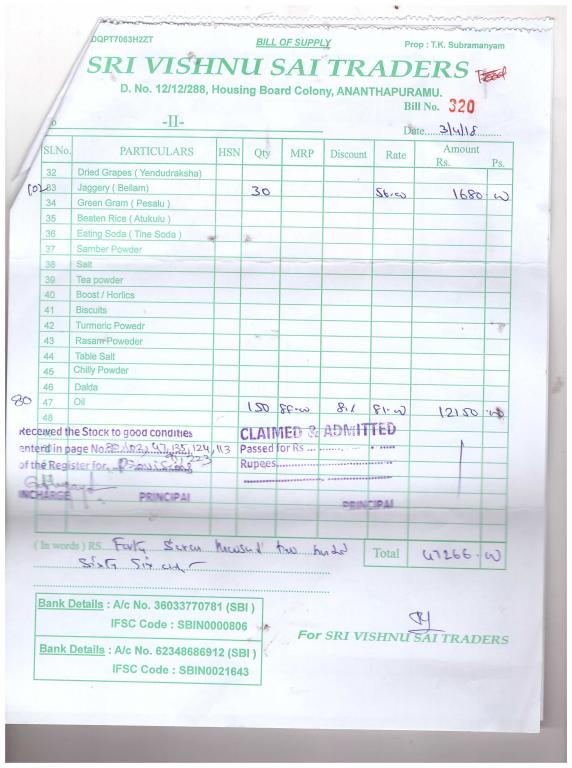 DQPT7063H2ZT BILL OF SUPPLY Prop : T.K. Subramanyam
SRI VISHNU SAI TRADERS
D. No. 12/12/288, Housing Board Colony, ANANTHAPURAMU.
Bill No. 320
-II- Date 3/4/18
Sl.No. PARTICULARS HSN Qty MRP Discount Rate Amount
Rs. Ps.
32 Dried Grapes ( Yendudraksha)
33 Jaggery ( Bellam) 30 56-00 1680-00
34 Green Gram ( Pesalu )
35 Beaten Rice ( Atukulu )
36 Eating Soda ( Tine Soda )
37 Samber Powder
38 Salt
39 Tea powder
40 Boost / Horlics
41 Biscuits
42 Turmeric Powedr
43 Rasam Poweder
44 Table Salt
45 Chilly Powder
46 Dalda
80 47 Oil 150 81-00 12150-00
48
Received the Stock to good condities
CLAIMED & ADMITTED
entered in page No. 124, 113 Passed for Rs
of the Register for Provisions Rupees
INCHARGE PRINCIPAL PRINCIPAL
( In words ) RS. Forty Seven thousand two hundred Total 47266-00
Sixty Six only
Bank Details : A/c No. 36033770781 (SBI )
IFSC Code : SBIN0000806
For SRI VISHNU SAI TRADERS
Bank Details : A/c No. 62348686912 (SBI )
IFSC Code : SBIN0021643